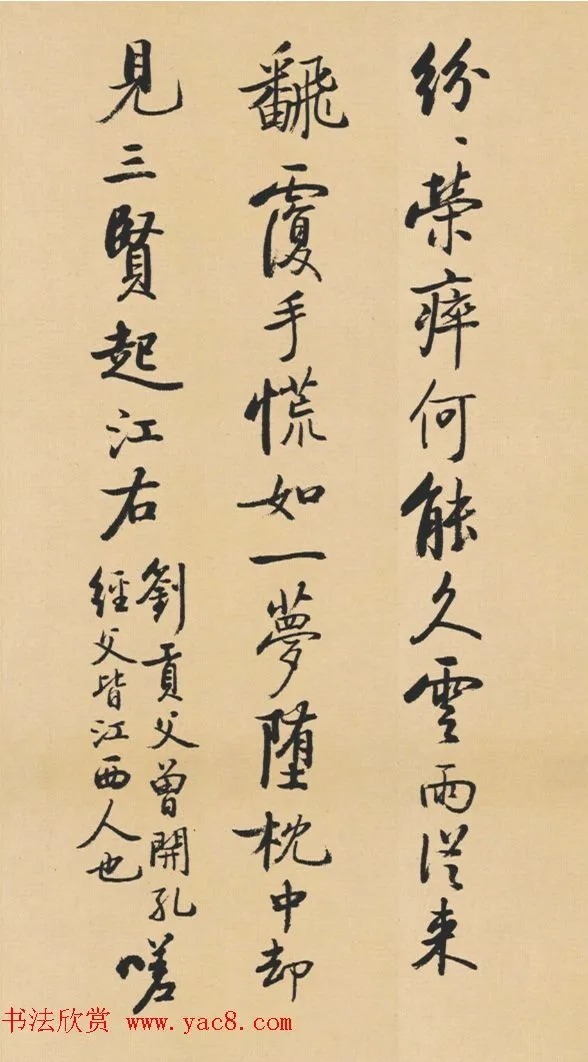 紛〻榮瘁何能久雲雨從来
飜覆手慌如一夢墮枕中却
見三賢起江右
劉貢父曾開孔
經父皆江西人也
嗟
书法欣赏 www.yac8.com